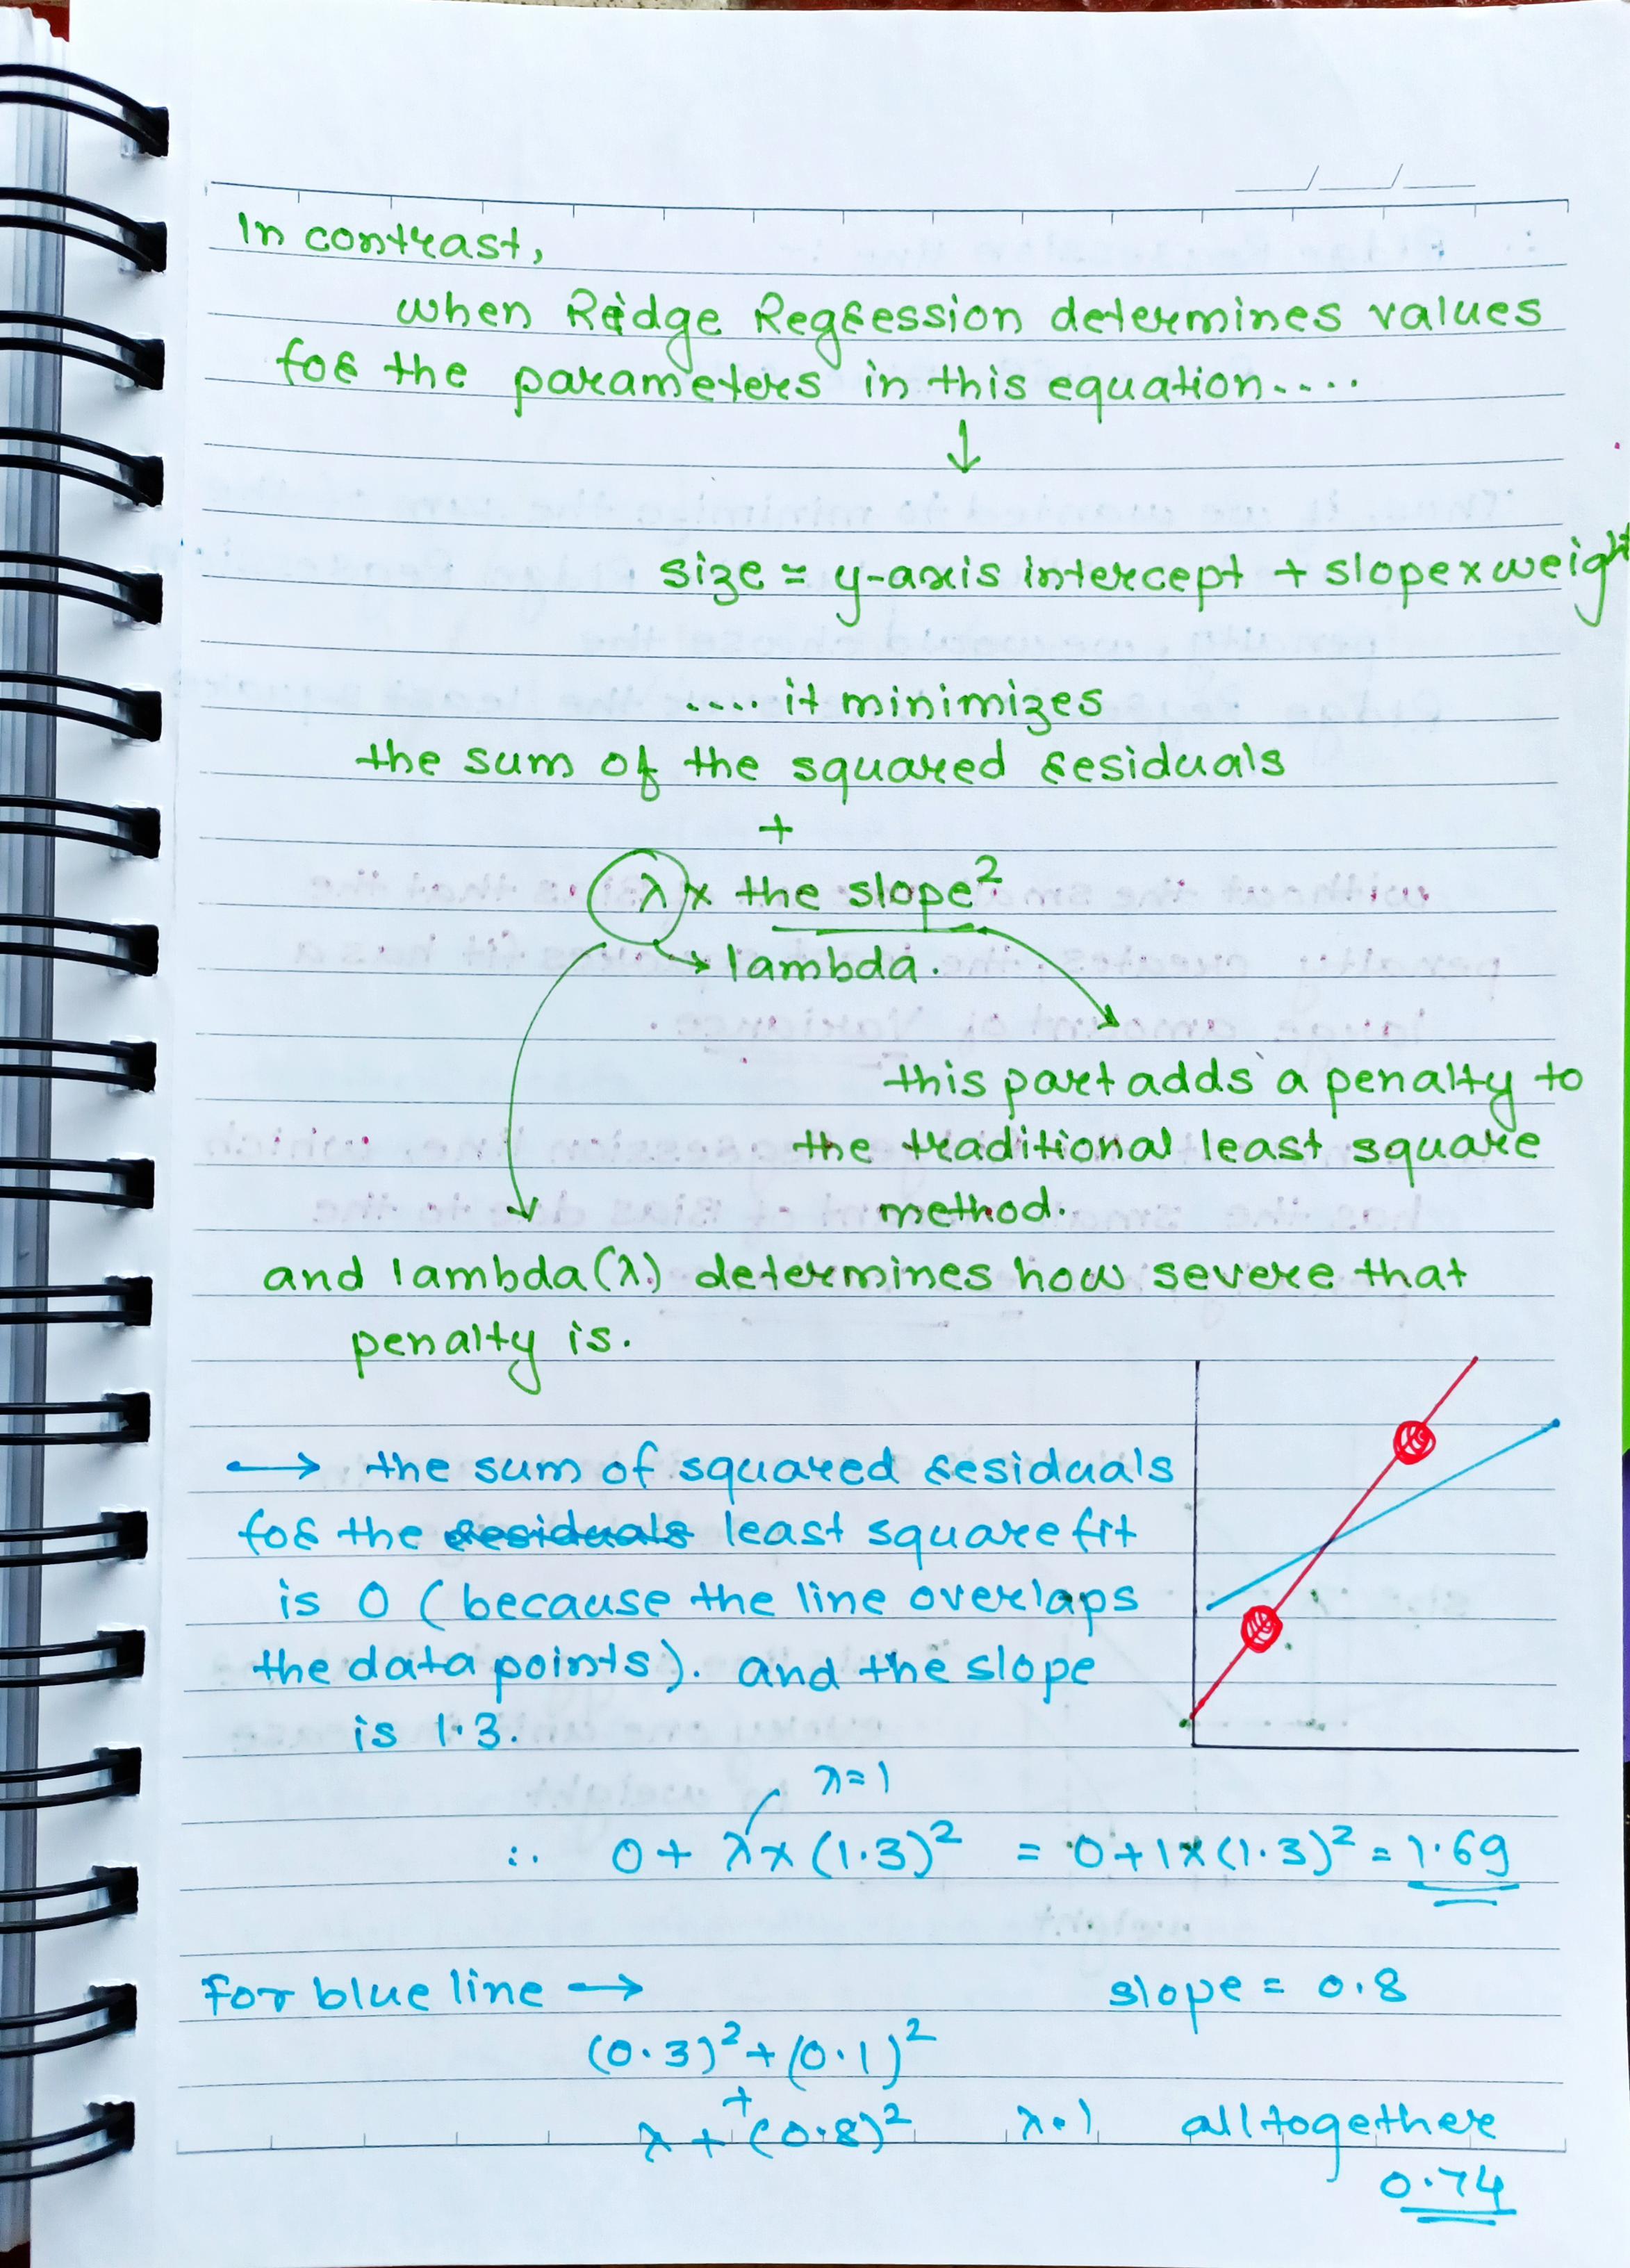 In contrast,
when Ridge Regression determines values
for the parameters in this equation....
↓
size = y-axis intercept + slope x weight
.... it minimizes
the sum of the squared residuals
+
λ x the slope²
→ lambda.
this part adds a penalty to
the traditional least square
method.
and lambda(λ) determines how severe that
penalty is.
→ the sum of squared residuals
for the residuals least square fit
is 0 (because the line overlaps
the data points). and the slope
is 1.3.
λ=1
∴ 0 + λ x (1.3)² = 0+1x(1.3)² = 1.69
For blue line → slope = 0.8
(0.3)² + (0.1)²
+
λ + (0.8)² λ=1 alltogethere
0.74